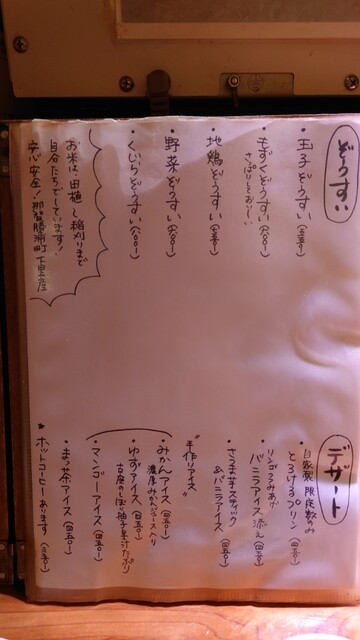 ぞうすい
・玉子ぞうすい
・もずくぞうすい(六〇〇-)
さっぱりしておいしい
・地鶏ぞうすい
・野菜ぞうすい(六〇〇-)
・くじらぞうすい(八〇〇-)
お米は、田植え〜稲刈りまで
自分たちでしています!
安心安全!那智勝浦町下里産
デザート
自家製 限定数のみ
・とろけるプリン
リンゴろみあげ
・バニラアイス添え
・さつま芋スティック
&バニラアイス
"手作りアイス"
・みかんアイス(四五〇-)
濃厚みかんジュース入り
・ゆずアイス(四五〇-)
古座のしぼり柚子果汁たっぷり
・マンゴーアイス(四五〇-)
・まっ茶アイス(四五〇-)
★ホットコーヒーあります(三五〇-)